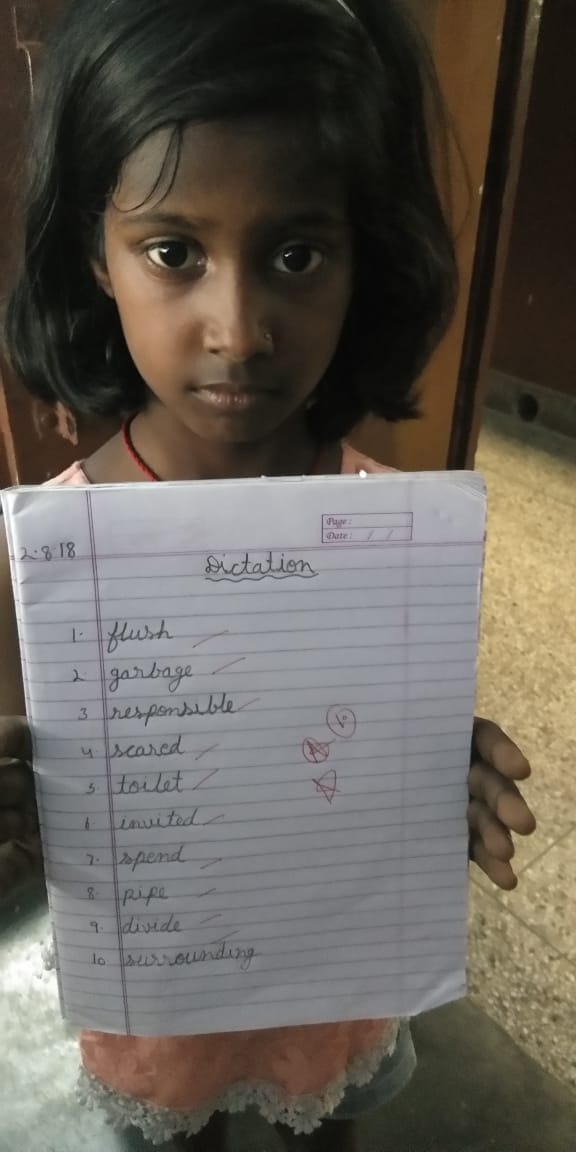 Page :
Date : / /
2.8.18
Dictation
1. flush
2. garbage
3 responsible
4 scared
5. toilet
6. invited
7. spend
8. pipe
9. divide
10 surrounding